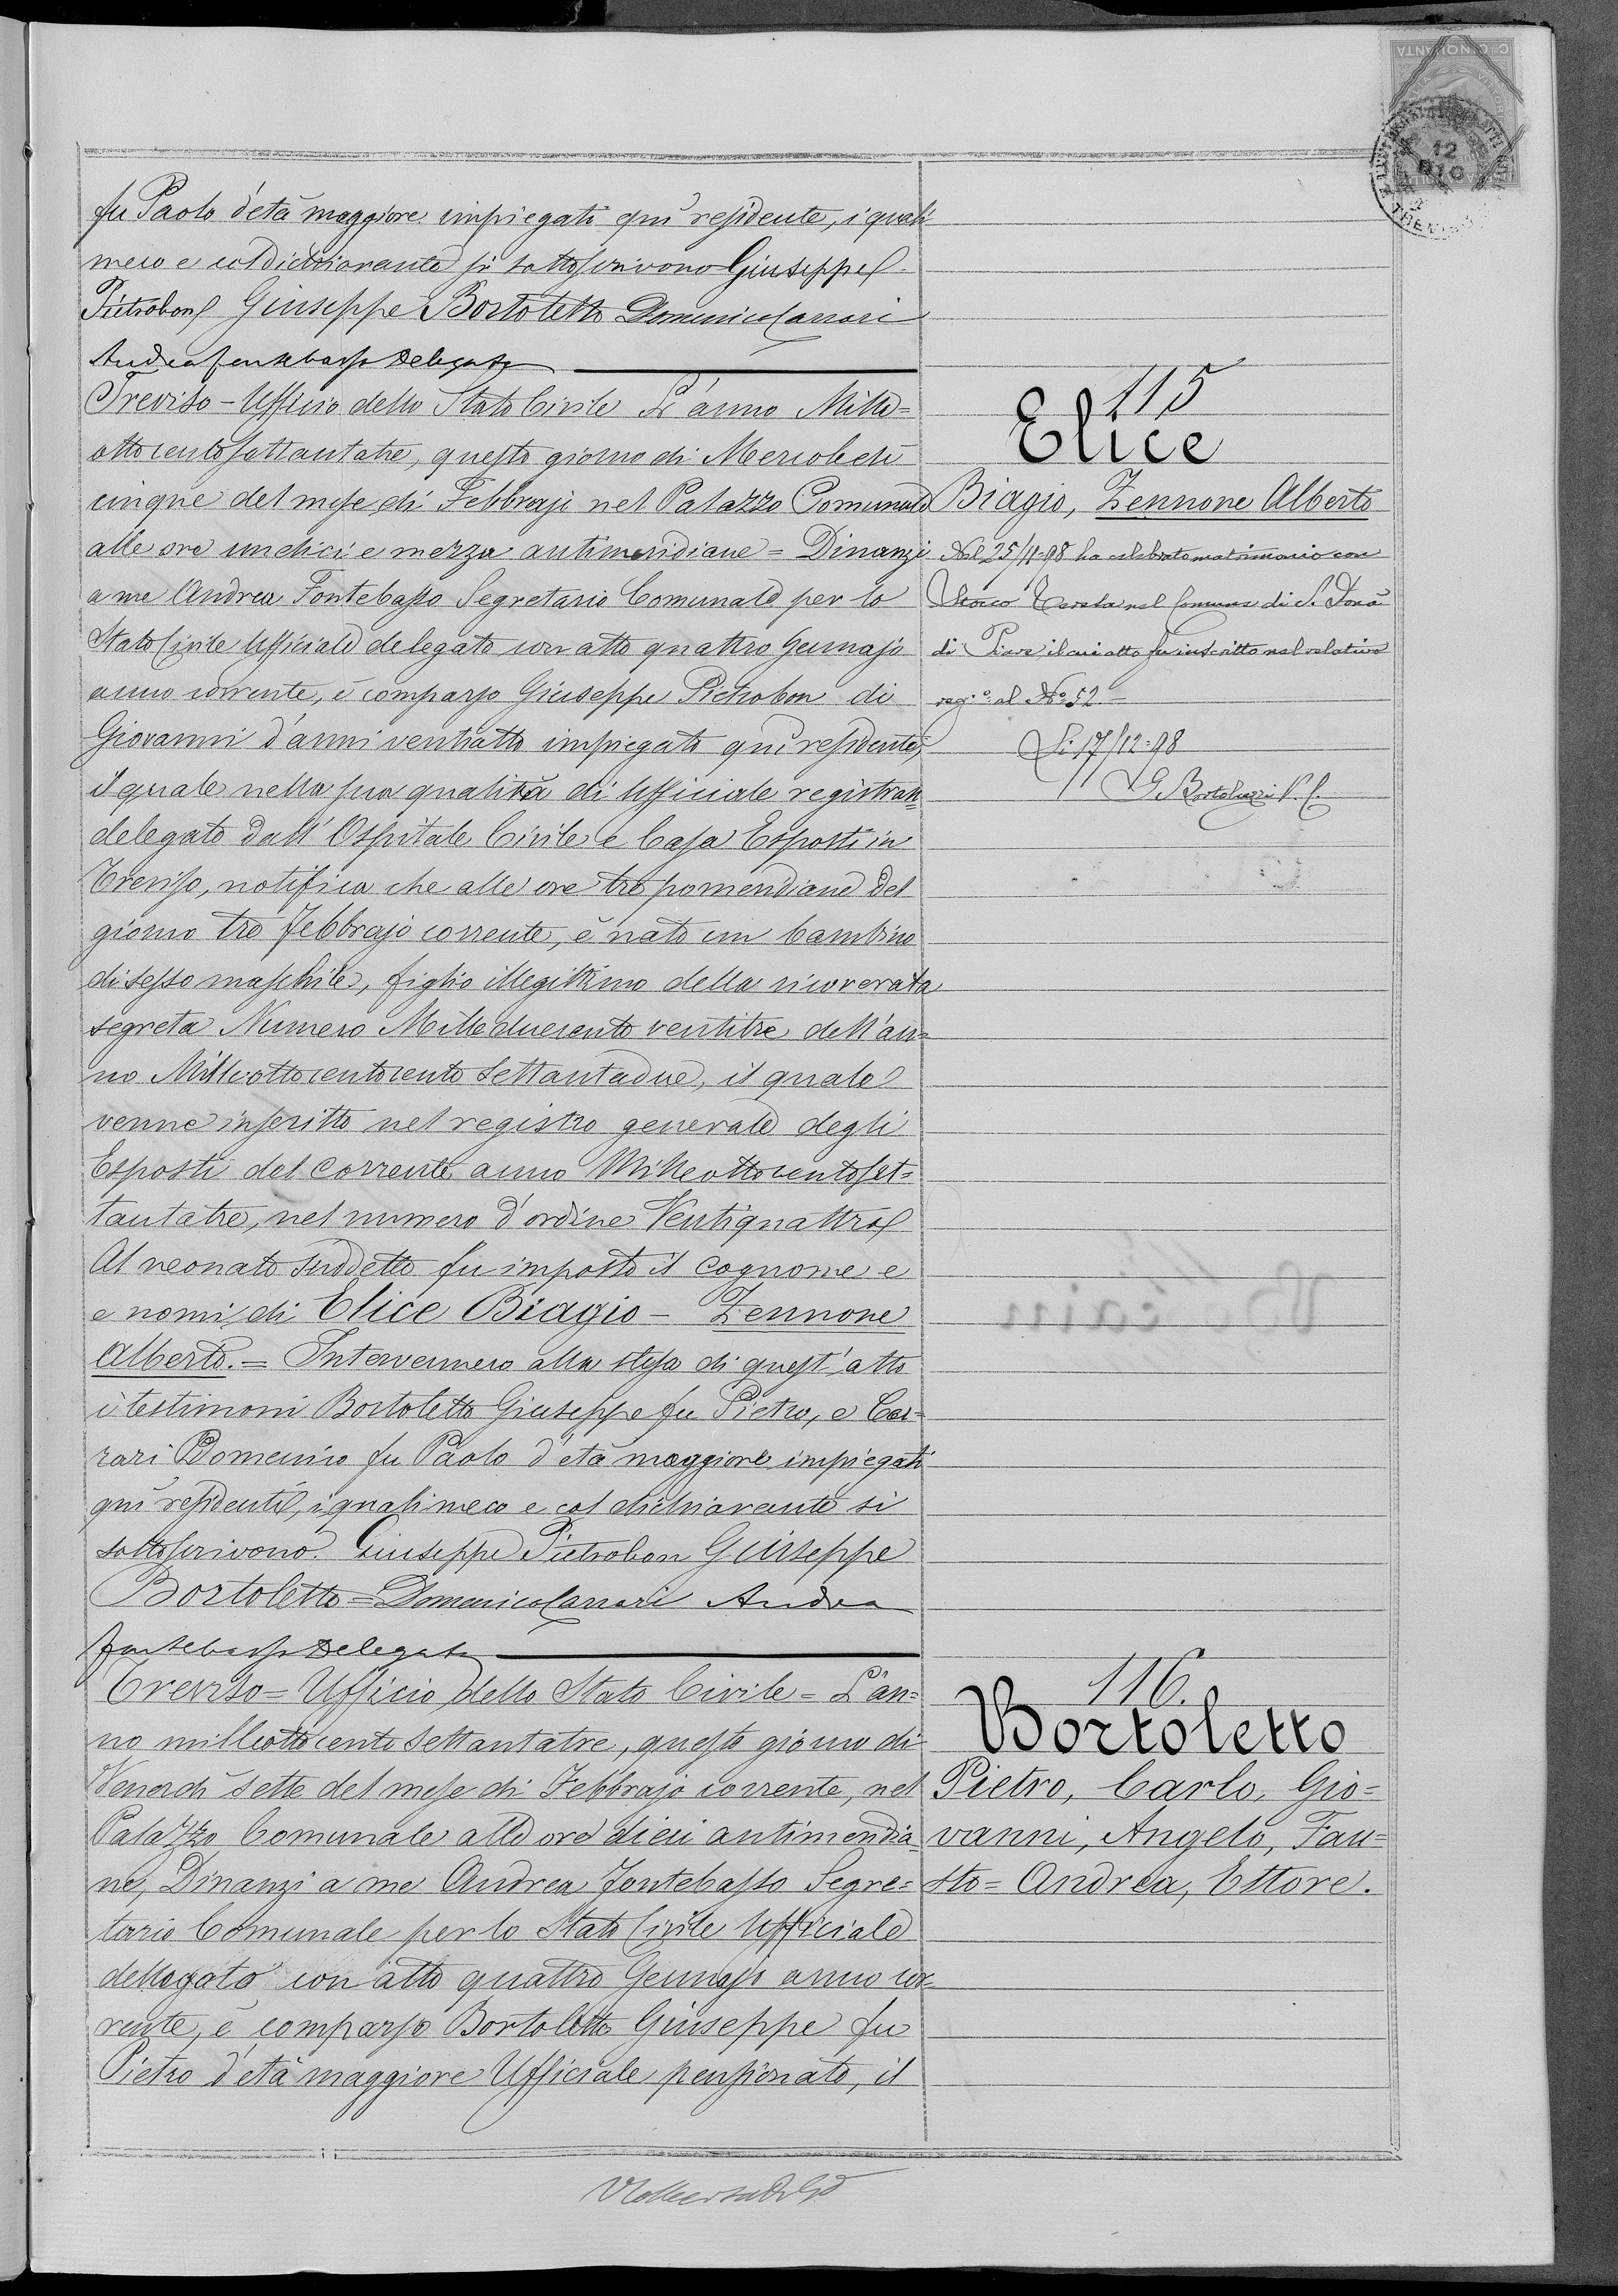 fu Paolo d'età maggiore impiegati quì residente, i quali
meco e col dichiarante si sottoscrivono Giuseppe
Pietrobon Giuseppe Bortoletto Domenico Carrari
Andrea Fontebasso Delegato
115
Treviso - Ufficio dello Stato Civile L'anno Mille=
Elice
ottocentosettantatre, questo giorno di Mercoledì
cinque del mese di Febbrajo nel Palazzo Comunale
Biagio, Zennone Alberto
alle ore undici e mezza antimeridiane = Dinanzi
a me Andrea Fontebasso Segretario Comunale per lo
Stato Civile Ufficiale delegato con atto quattro Gennajo
anno corrente, è comparso Giuseppe Pietrobon di
Giovanni d'anni ventiotto impiegato quì residente,
il quale nella sua qualità di Ufficiale registran=
delegato dall'Ospitale Civile e Casa Esposti in
Treviso, notifica che alle ore tre pomeridiane del
giorno tre Febbrajo corrente, è nato un bambino
di sesso maschile, figlio illegittimo della ricoverata
segreta Numero Milleduecento ventitre dell'an=
no Milleottocentocento settantadue, il quale
venne inscritto nel registro generale degli
Esposti del corrente anno Milleottocentoset=
tantatre, nel numero d'ordine Ventiquattro
Al neonato suddetto fu imposto il cognome e
e nomi di Elice Biagio - Zennone
Alberto. = Intervennero alla stesa di quest'atto
i testimoni Bortoletto Giuseppe fu Pietro, e Car=
rari Domenico fu Paolo d'età maggiore impiegati
quì residenti, i quali meco e col dichiarante si
sottoscrivono. Giuseppe Pietrobon Giuseppe
Bortoletto = Domenico Carrari Andrea
Fontebasso Delegato
Nel 25/11-98 ha celebrato matrimonio con
Teresa nel Comune di S. Donà
di Piave il cui atto fu inscritto nel relativo
regio. al No. 52. -
Li 17/12-98
G. Bortoluzzi
116.
Treviso = Ufficio dello Stato Civile = L'an=
Bortoletto
no milleottocento settantatre, questo giorno di
Venerdì sette del mese di Febbrajo corrente, nel
Pietro, Carlo, Gio=
Palazzo Comunale alle ore dieci antimeridia=
vanni, Angelo, Fau=
ne, Dinanzi a me Andrea Fontebasso Segre=
sto = Andrea, Ettore.
tario Comunale per lo Stato Civile Ufficiale
dellegato con atto quattro Gennajo anno cor=
rente, è comparso Bortoletto Giuseppe fu
Pietro d'età maggiore Ufficiale pensionato, il
12
DIC